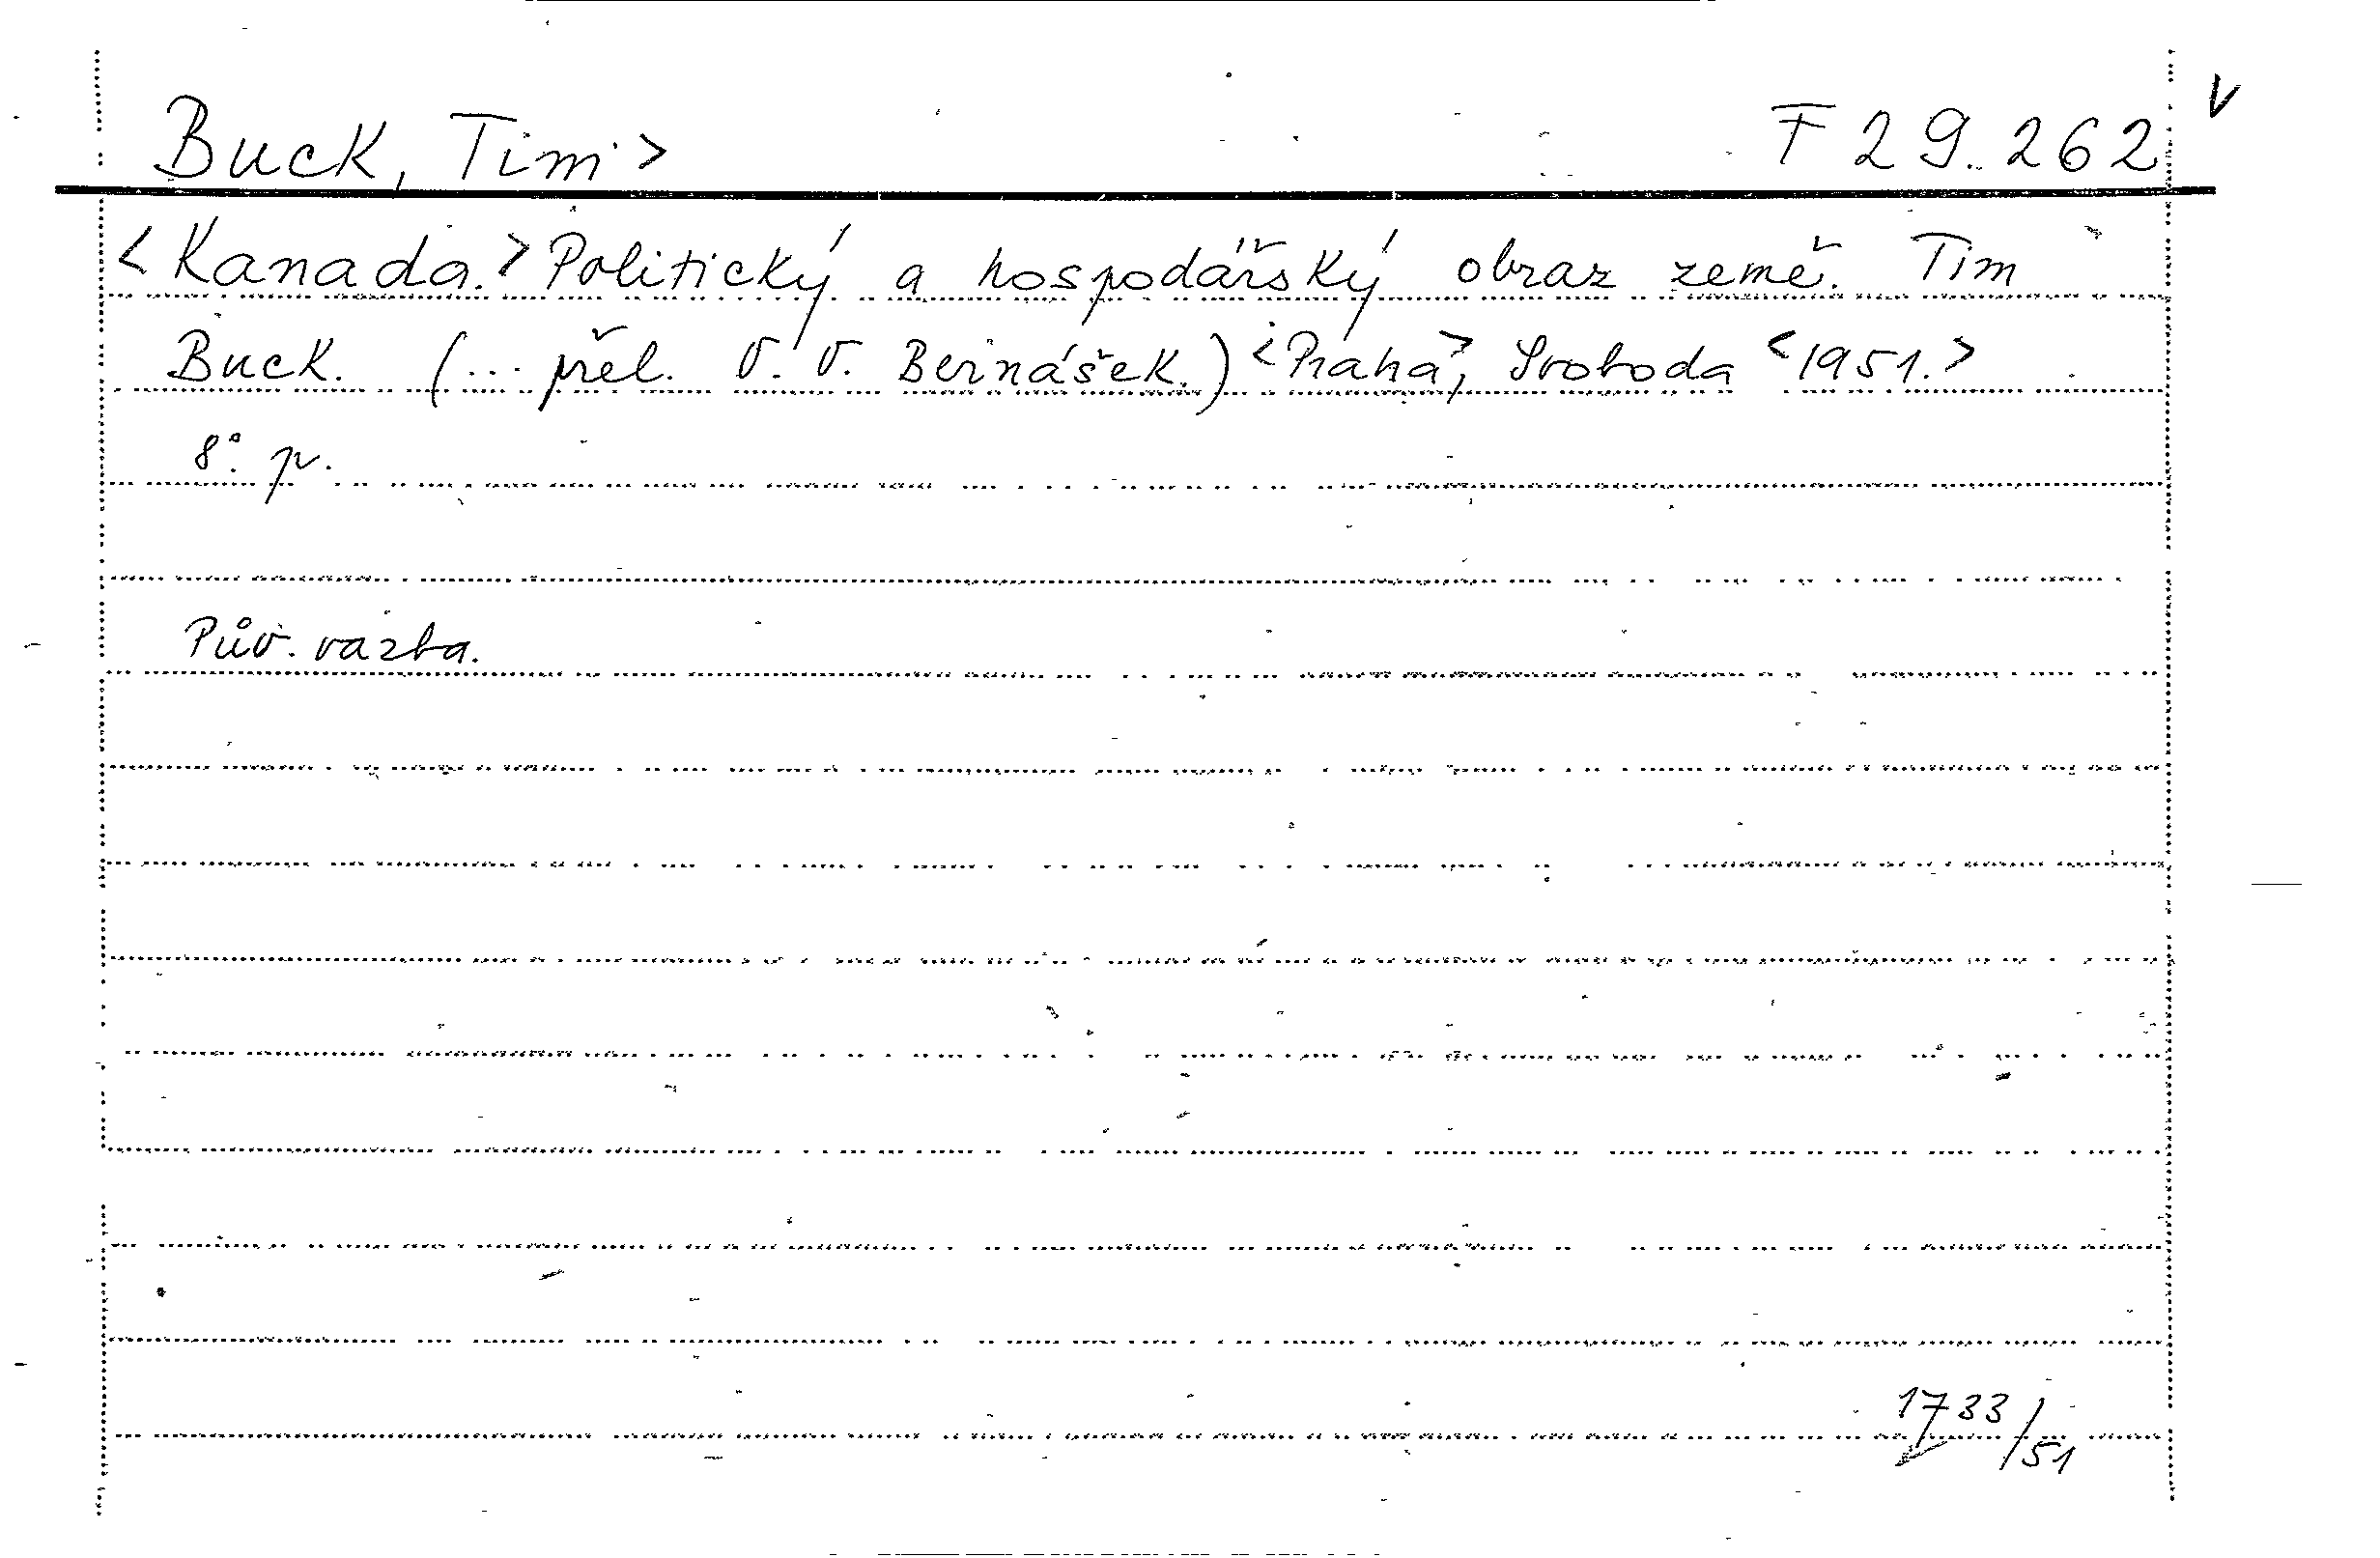 Buck, Tim> F 29.262 V
<Kanada.> Politický a hospodářský obraz země. Tim
Buck. (... přel. V. V. Bernášek.) <Praha>, Svoboda <1951.>
8°. p.
Pův. vazba.
1733/51